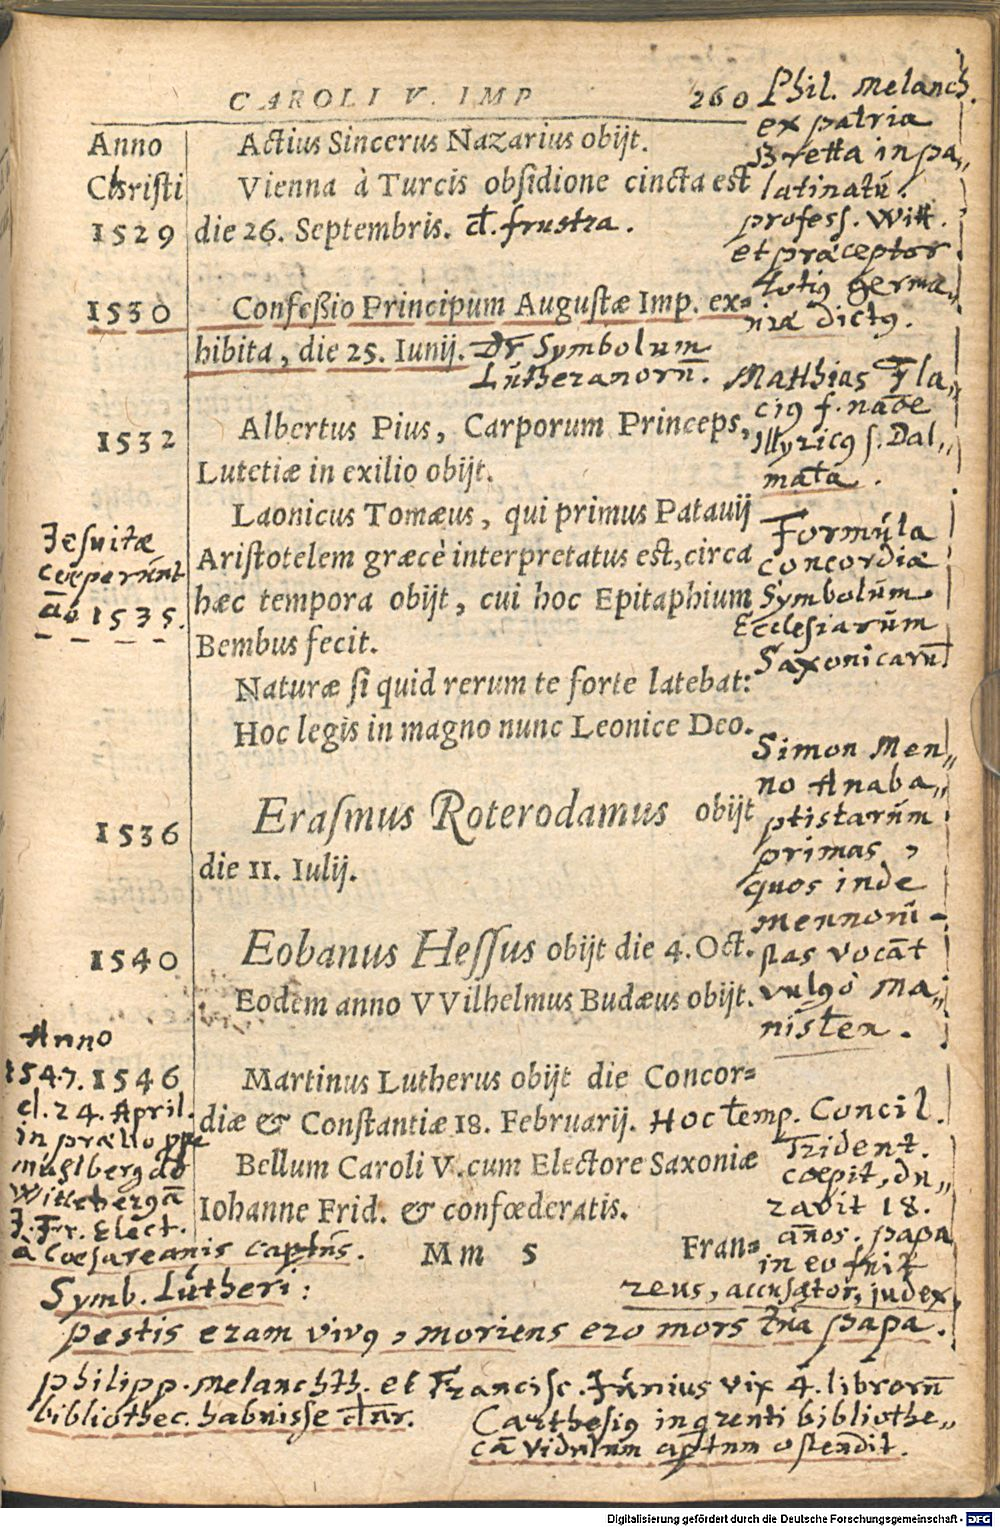 CAROLI V. IMP 260
Anno
Christi
1529
Actius Sincerus Nazarius obijt.
Vienna à Turcis obsidione cincta est
die 26. Septembris. ct. frustra.
1530
Confeßio Principum Augustæ Imp. ex=
hibita, die 25. Iunij. Dr Symbolum
Lutheranorū.
1532
Albertus Pius, Carporum Princeps,
Lutetiæ in exilio obijt.
Laonicus Tomæus, qui primus Patauij
Aristotelem græcè interpretatus est, circa
hæc tempora obijt, cui hoc Epitaphium
Bembus fecit.
Naturæ si quid rerum te forte latebat:
Hoc legis in magno nunc Leonice Deo.
1536
Erasmus Roterodamus obijt
die 11. Iulij.
1540
Eobanus Hessus obijt die 4. Oct.
Eodem anno VVilhelmus Budæus obijt.
1546
Martinus Lutherus obijt die Concor=
diæ & Constantiæ 18. Februarij.
Bellum Caroli V. cum Electore Saxoniæ
Iohanne Frid. & confœderatis.
Mm 5 Fran=
Phil. Melanch.
ex patria
Bretta in pa„
latinatū.
profess. Witt.
et præceptor
totiꝰ germa„
niæ dictꝰ.
Matthias Fla„
ciꝰ f. naōe
Illyricꝰ s. Dal„
mata.
Formula
concordiæ
Symbolum
Ecclesiarum
Saxonicarū
Simon Men„
no Anaba„
ptistarum
primas,
quos inde
mennoni-
stas vocāt
vulgò Ma„
nisten.
Hoc temp. Concil.
Trident.
cœpit, du„
ravit 18.
años. papa
in eo fuit
reus, accusator, iudex.
Jesuitæ
cœperunt
āo 1535.
Anno
1547.
d. 24. April.
in prælio ppe
muhlberg do
Wittebergā
J. Fr. Elect.
à Cæsareanis captus.
Symb. Lutheri:
pestis eram vivꝰ, moriens ero mors tua papa.
philipp. melanchth. et Francisc. Junius vix 4. librorū
bibliothec. habuisse dnr.
Carthesiꝰ inqrenti bibliothe„
cā vitulum aptum ostendit.
Digitalisierung gefördert durch die Deutsche Forschungsgemeinschaft - DFG